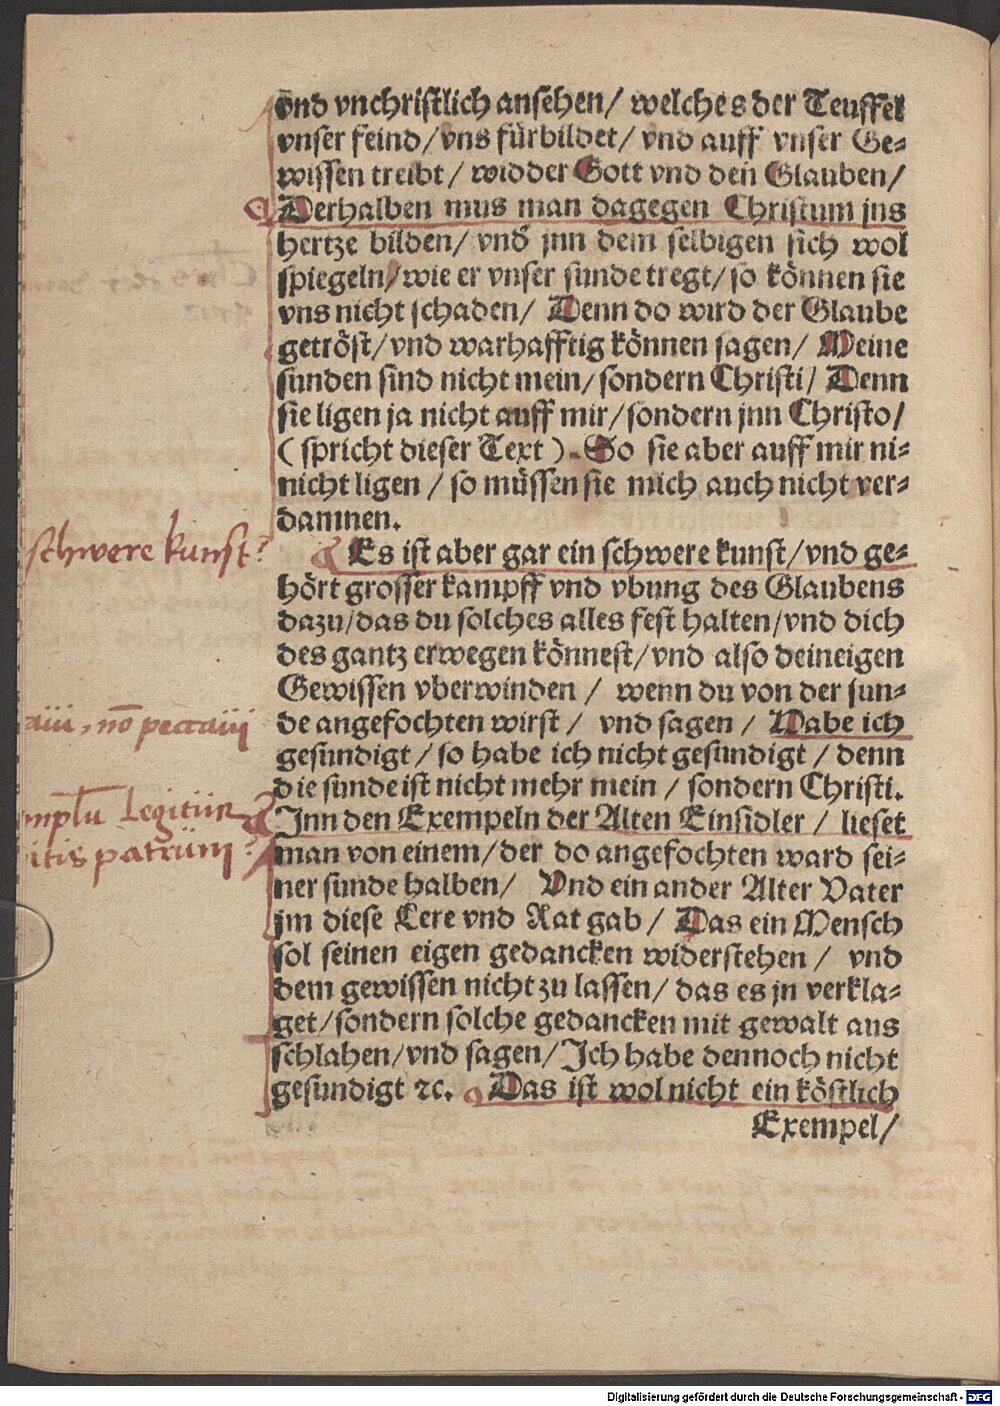 vnd vnchristlich ansehen/ welches der Teuffel
vnser feind/vns fürbildet/ vnd auff vnser Ge-
wissen treibt/ widder Gott vnd den Glauben/
Derhalben mus man dagegen Christum jns
hertze bilden/ vnd jnn dem selbigen sich wol
spiegeln/wie er vnser sunde tregt/ so können sie
vns nicht schaden/ Denn do wird der Glaube
getröst/vnd warhafftig können sagen/ Meine
sunden sind nicht mein/sondern Christi/ Denn
sie ligen ja nicht auff mir/sondern jnn Christo/
(spricht dieser Text). So sie aber auff mir ni-
nicht ligen / so müssen sie mich auch nicht ver-
damnen.
schwere kunst?
Es ist aber gar ein schwere kunst/vnd ge-
hört grosser kampff vnd vbung des Glaubens
dazu/das du solches alles fest halten/vnd dich
des gantz erwegen könnest/vnd also dein eigen
Gewissen vberwinden / wenn du von der sun-
de angefochten wirst / vnd sagen / Habe ich
gesundigt / so habe ich nicht gesundigt / denn
die sunde ist nicht mehr mein / sondern Christi.
aui, nō peccauj
Inn den Exempeln der Alten Einsidler / lieset
man von einem/der do angefochten ward sei-
ner sunde halben/ Vnd ein ander Alter Vater
jm diese Lere vnd Rat gab / Das ein Mensch
sol seinen eigen gedancken widerstehen / vnd
dem gewissen nicht zu lassen/ das es jn verkla-
get/sondern solche gedancken mit gewalt aus
schlahen/vnd sagen/Ich habe dennoch nicht
gesundigt ꝛc. Das ist wol nicht ein köstlich
Legitur
itis patrum
Exempel/
Digitalisierung gefördert durch die Deutsche Forschungsgemeinschaft - DFG